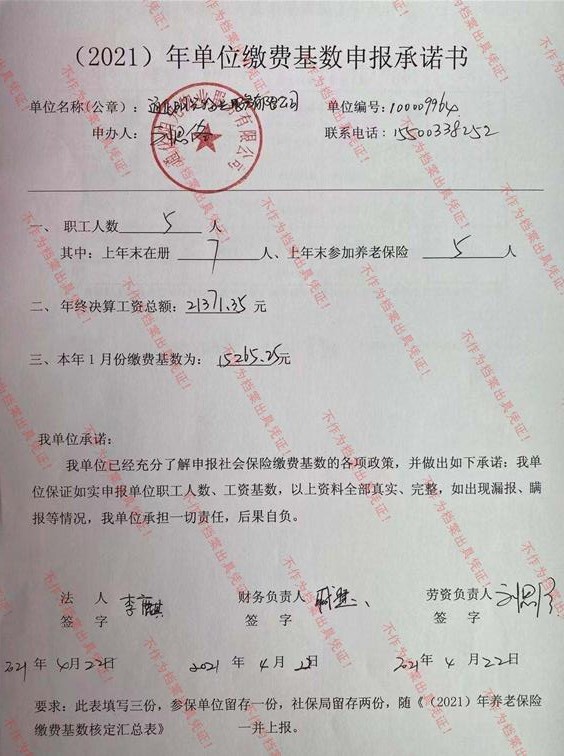 （2021）年单位缴费基数申报承诺书
单位名称(公章)：
单位编号：100009964
申办人：
联系电话：15500338252
一、 职工人数 5 人
其中：上年末在册 7 人、上年末参加养老保险 5 人
二、年终决算工资总额：21371.35 元
三、本年 1 月份缴费基数为： 15265.25元
我单位承诺:
我单位已经充分了解申报社会保险缴费基数的各项政策，并做出如下承诺：我单
位保证如实申报单位职工人数、工资基数，以上资料全部真实、完整，如出现漏报、瞒
报等情况，我单位承担一切责任，后果自负。
法 人 李麒
签 字
财务负责人
签 字
劳资负责人
签 字
2021 年 4月22日
2021 年 4 月 22日
2021年 4 月 22日
要求：此表填写三份，参保单位留存一份，社保局留存两份，随《（2021）年养老保险
缴费基数核定汇总表》 一并上报。
不作为档案出具凭证！